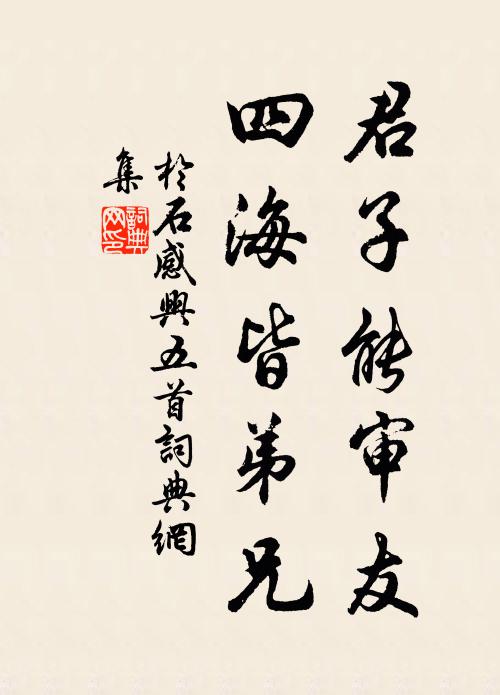 君子能审友
四海皆弟兄
於石感興五首詞典網
集
詞典網印